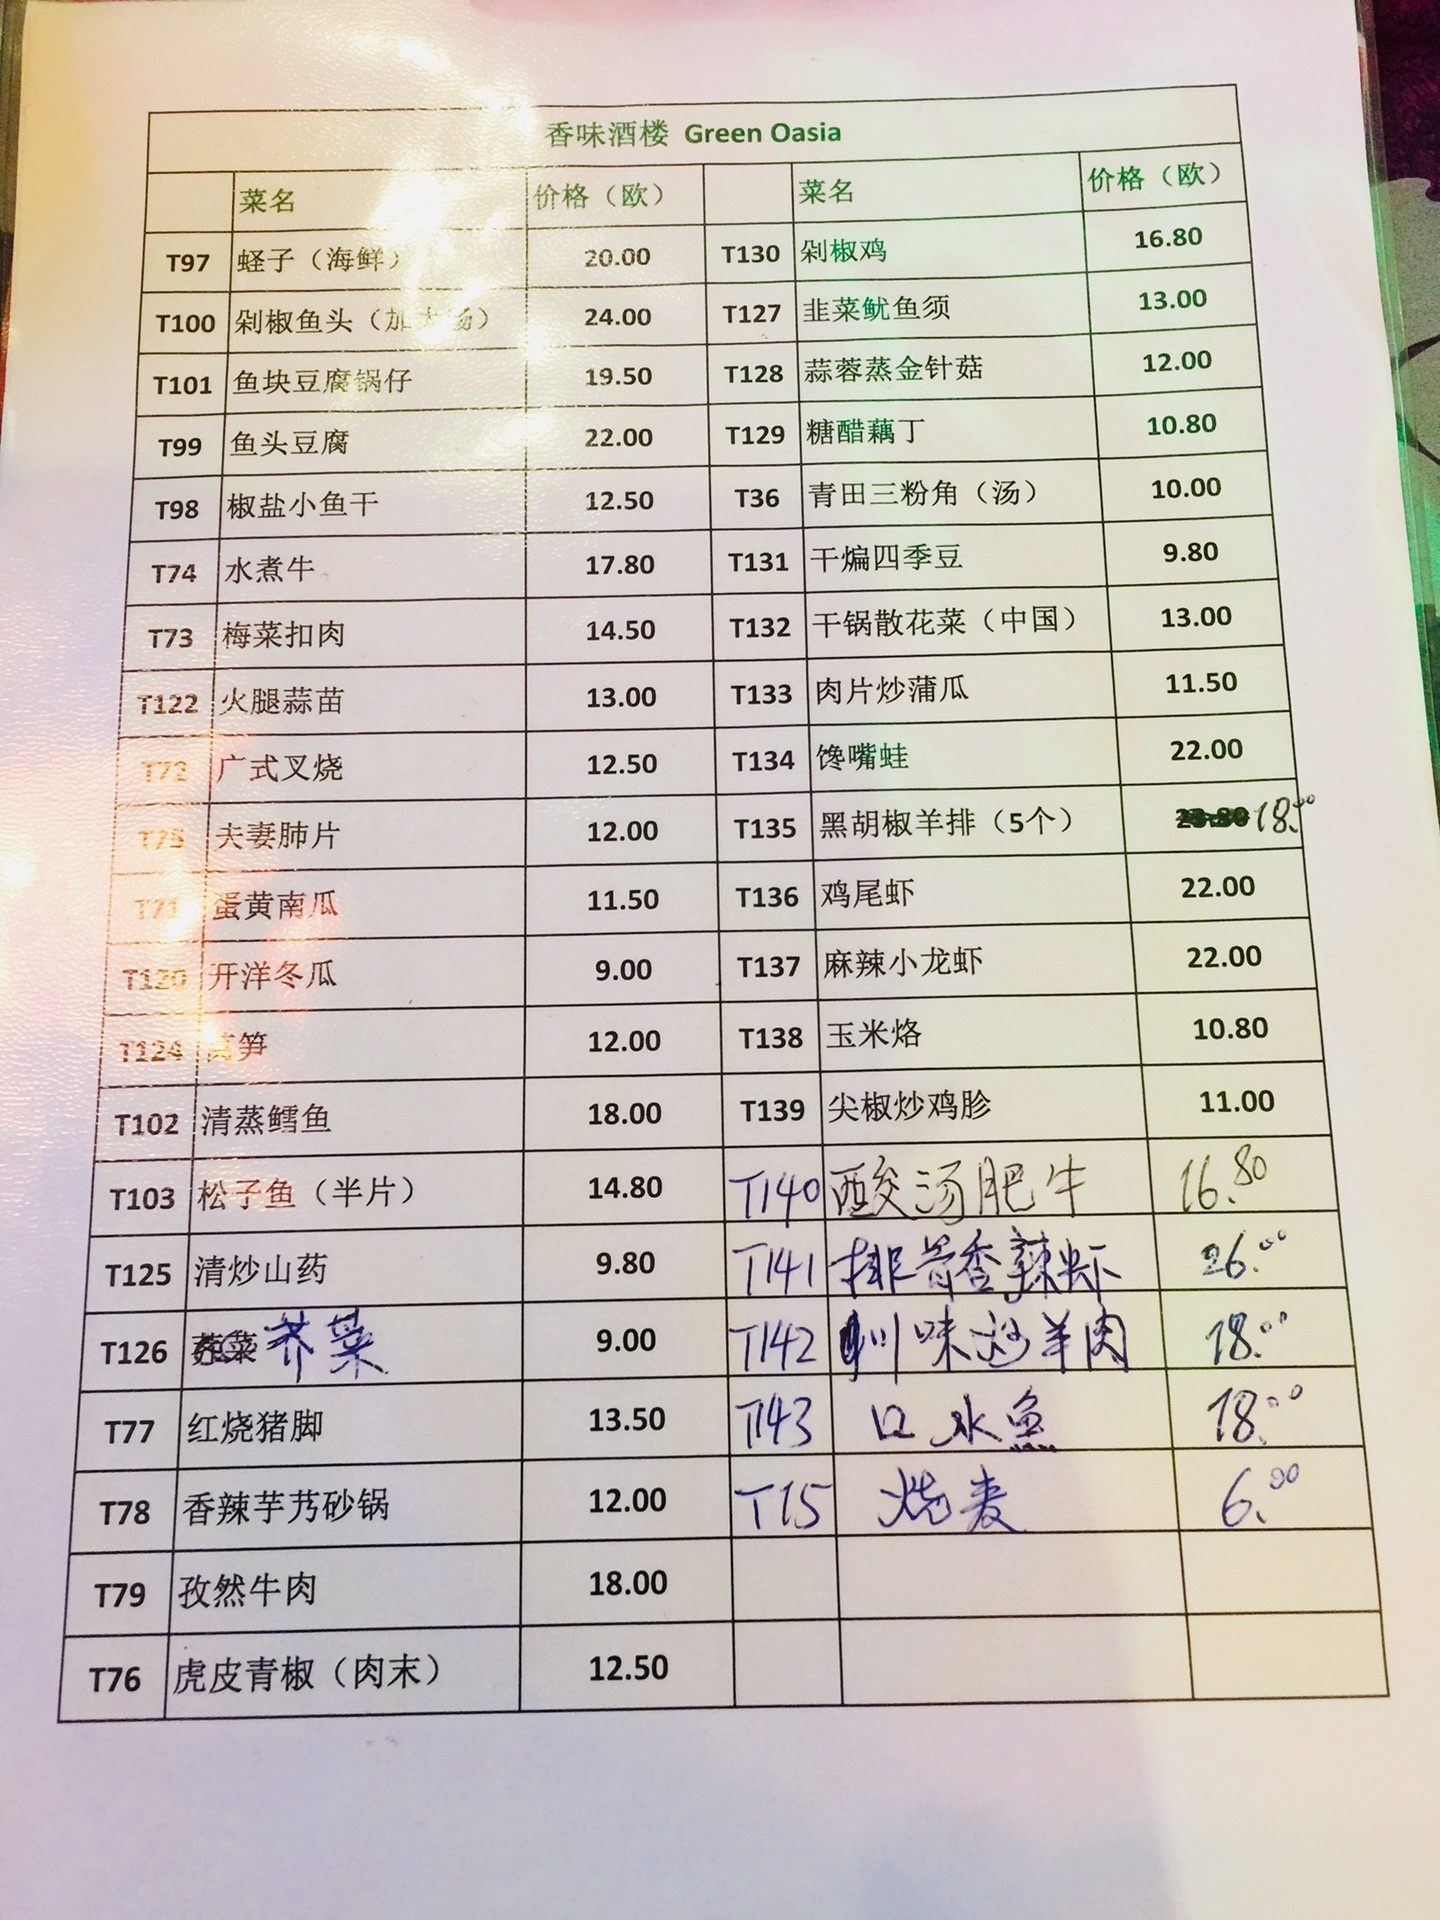 香味酒楼 Green Oasia
菜名 价格（欧） 菜名 价格（欧）
T97 蛏子（海鲜） 20.00 T130 剁椒鸡 16.80
T100 剁椒鱼头（加大汤） 24.00 T127 韭菜鱿鱼须 13.00
T101 鱼块豆腐锅仔 19.50 T128 蒜蓉蒸金针菇 12.00
T99 鱼头豆腐 22.00 T129 糖醋藕丁 10.80
T98 椒盐小鱼干 12.50 T36 青田三粉角（汤） 10.00
T74 水煮牛 17.80 T131 干煸四季豆 9.80
T73 梅菜扣肉 14.50 T132 干锅散花菜（中国） 13.00
T122 火腿蒜苗 13.00 T133 肉片炒蒲瓜 11.50
T72 广式叉烧 12.50 T134 馋嘴蛙 22.00
T75 夫妻肺片 12.00 T135 黑胡椒羊排（5个） 18.00
T71 蛋黄南瓜 11.50 T136 鸡尾虾 22.00
T120 开洋冬瓜 9.00 T137 麻辣小龙虾 22.00
T124 莴笋 12.00 T138 玉米烙 10.80
T102 清蒸鳕鱼 18.00 T139 尖椒炒鸡胗 11.00
T103 松子鱼（半片） 14.80 T140 酸汤肥牛 16.80
T125 清炒山药 9.80 T141 排骨香辣虾 26.00
T126 荠菜 9.00 T142 川味炒羊肉 18.00
T77 红烧猪脚 13.50 T143 口水鱼 18.00
T78 香辣芋艿砂锅 12.00 T15 烧麦 6.00
T79 孜然牛肉 18.00
T76 虎皮青椒（肉末） 12.50